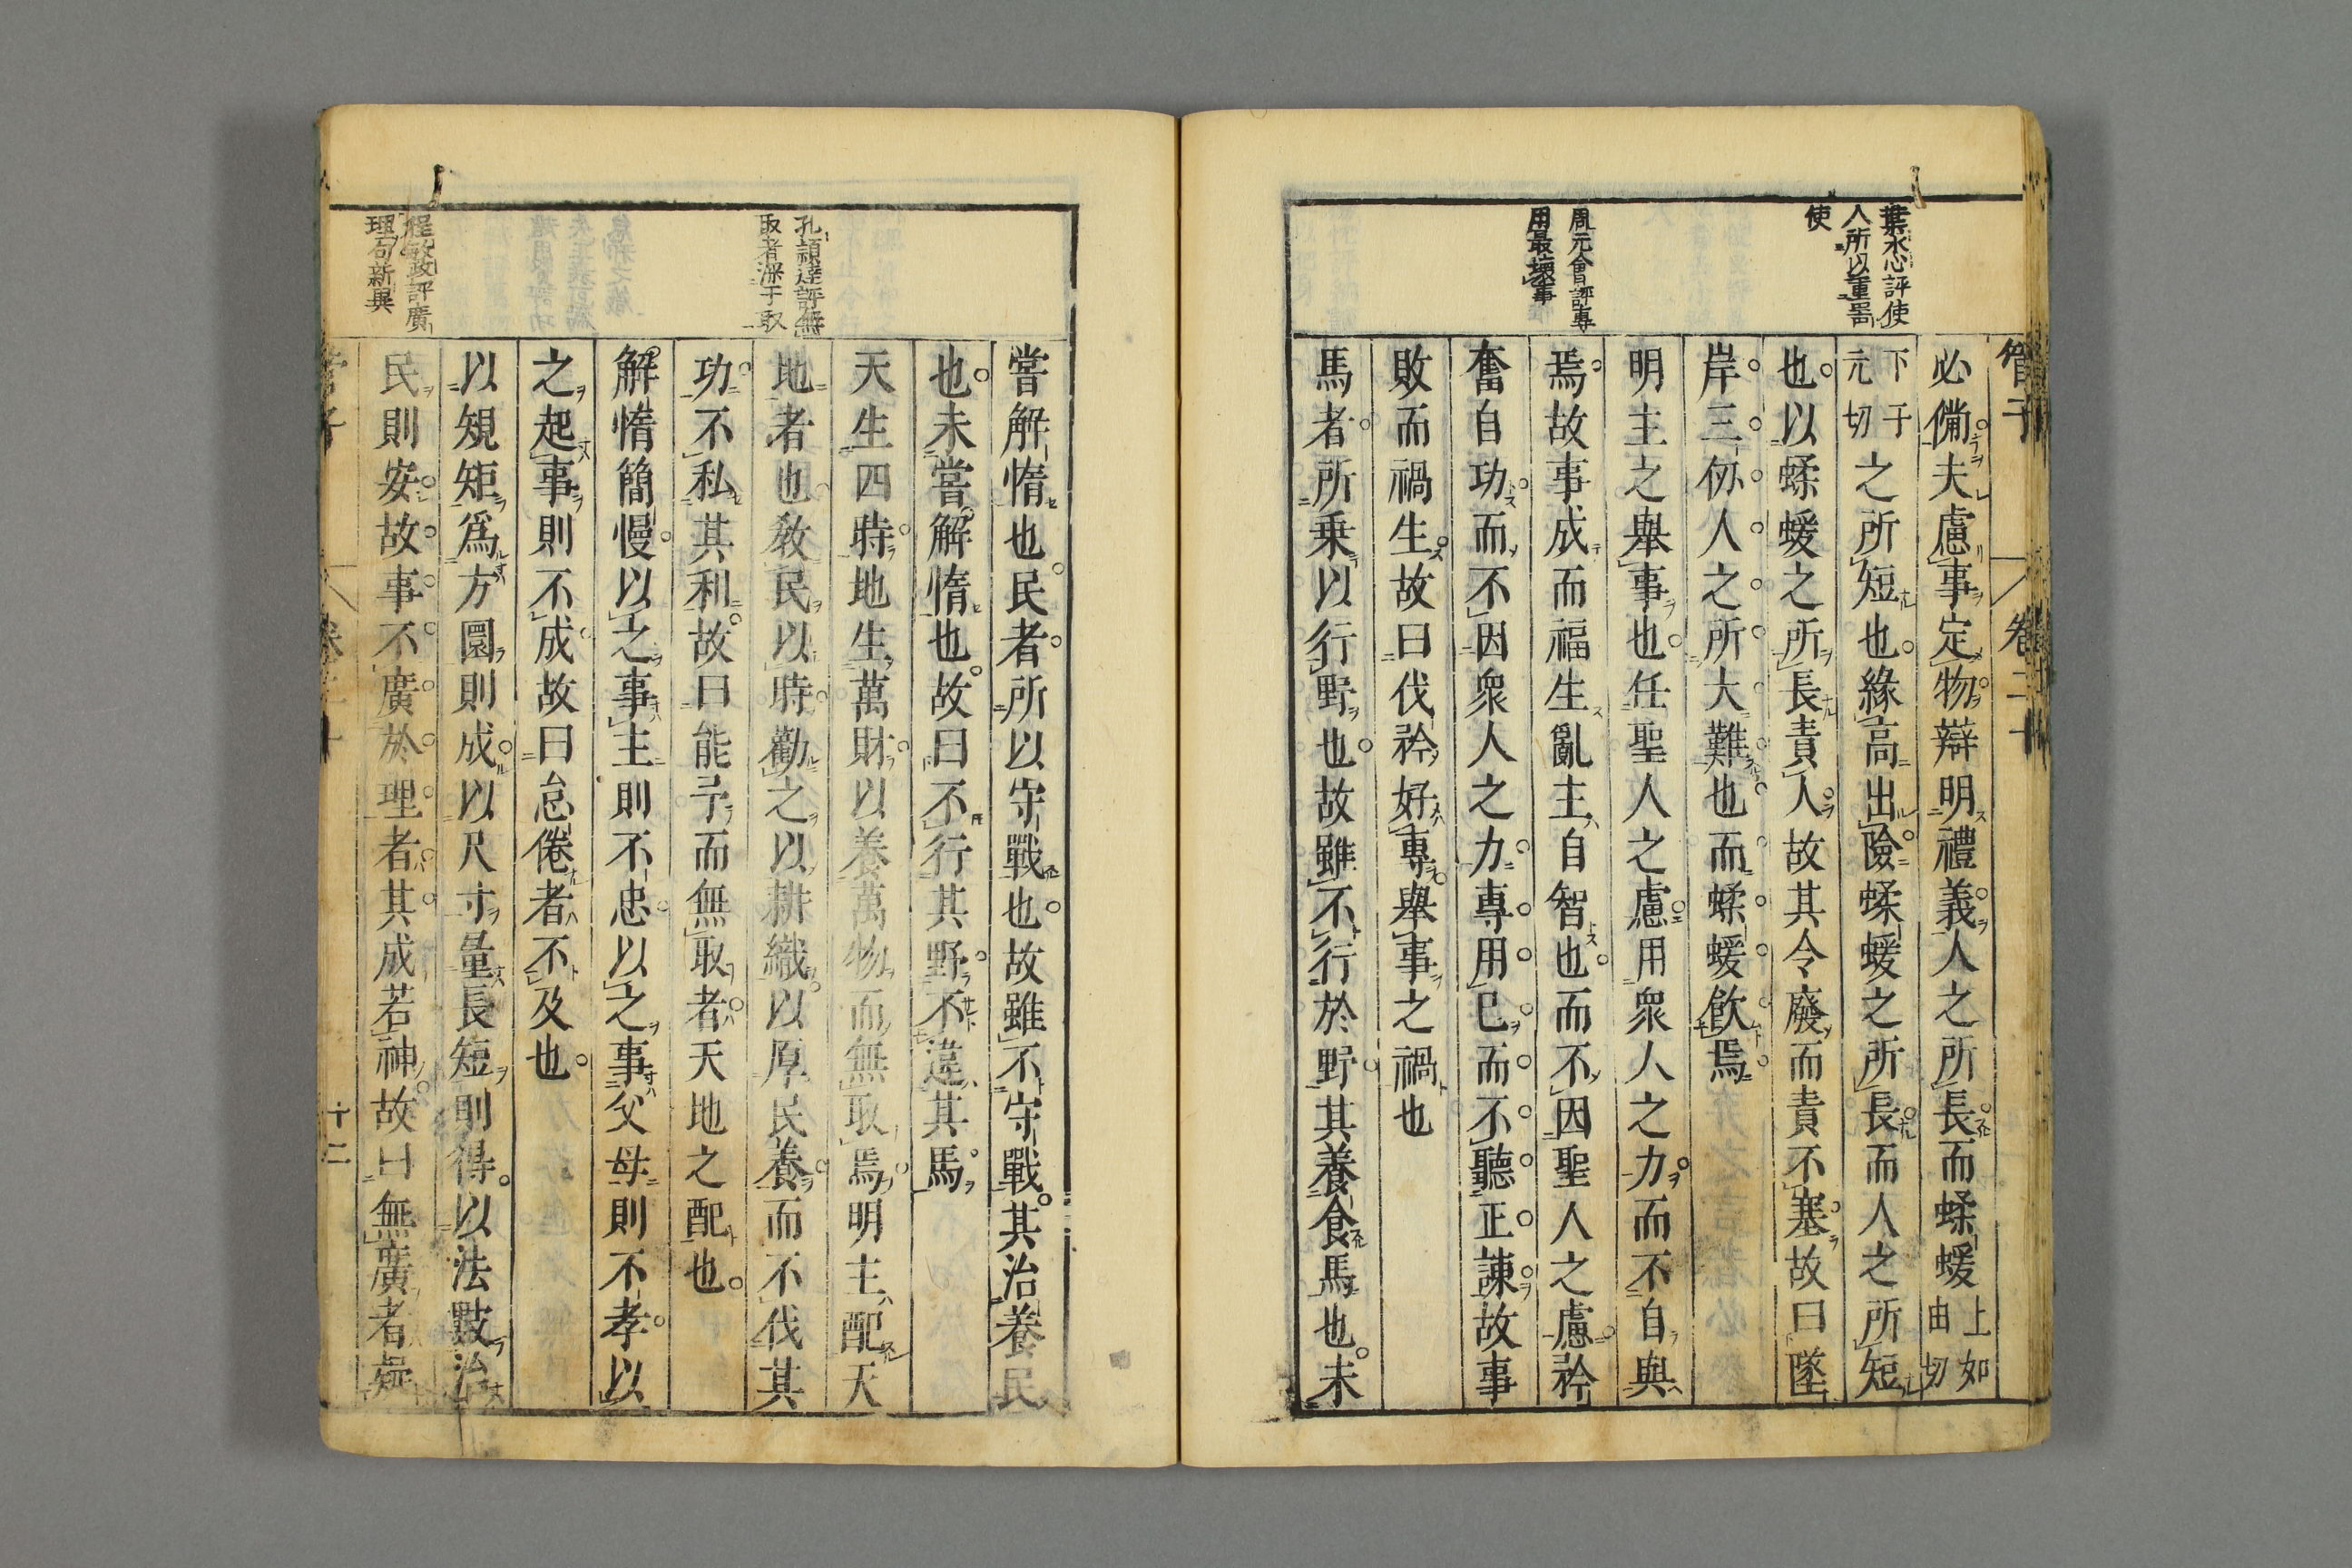 葉水心評使
人所以重器
使
周元會評專
用最壞事
管子
卷二十
必備夫慮事定物辯明禮義人之所長而蝚蝯上如由切
下子元切之所短也緣高出險蝚蝯之所長而人之所短
也以蝚蝯之所長責人故其令廢而責不塞故曰墜
岸三仞人之所大難也而蝚蝯飲焉
明主之舉事也任聖人之慮用衆人之力而不自與
焉故事成而福生亂主自智也而不因聖人之慮矜
奮自功而不因衆人之力專用已而不聽正諫故事
敗而禍生故曰伐矜好專舉事之禍也
馬者所乗以行野也故雖不行於野其養食馬也未
孔頴達評無
取者深于取
程敏政評廣
理句新異
嘗解惰也民者所以守戰也故雖不守戰其治養民
也未嘗解惰也故曰不行其野不違其馬
天生四時地生萬財以養萬物而無取焉明主配天
地者也教民以時勸之以耕織以厚民養而不伐其
功不私其利故曰能予而無取者天地之配也
解惰簡慢以之事主則不忠以之事父母則不孝以
之起事則不成故曰怠倦者不及也
以規矩爲方圜則成以尺寸量長短則得以法數治
民則安故事不廣於理者其成若神故曰無廣者疑
十二